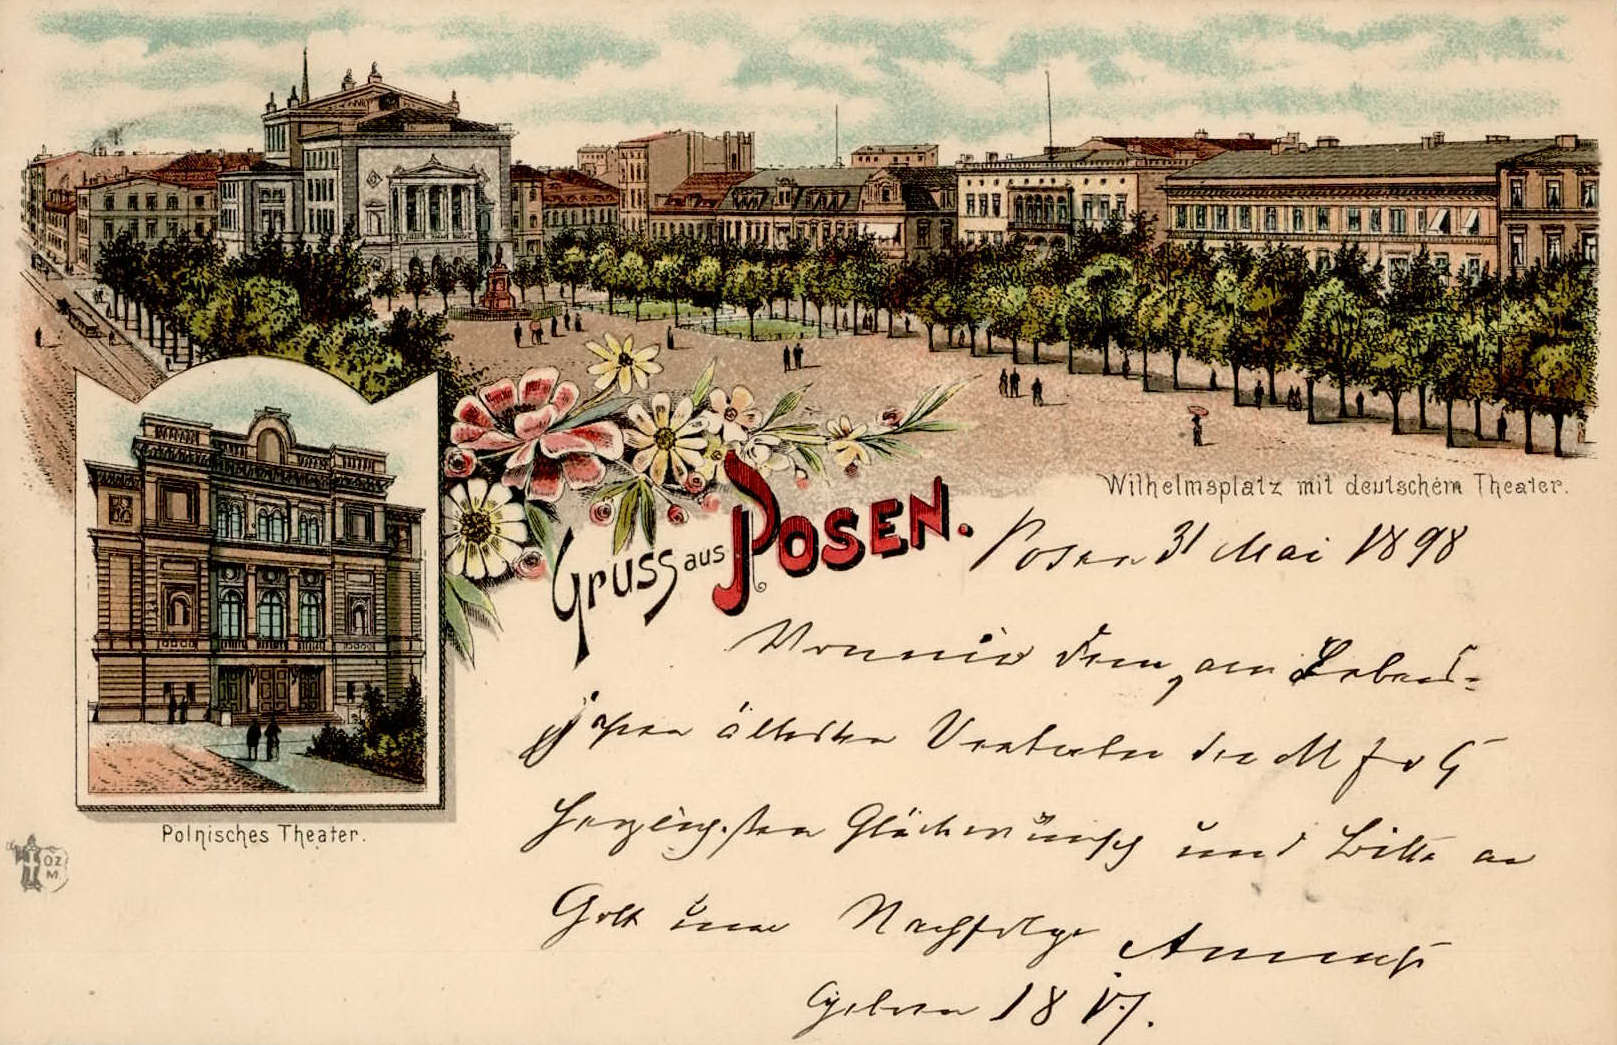 Wilhelmsplatz mit deutschem Theater.
Gruss aus POSEN.
Posen 31 Mai 1898
dem, an Lebens-
jahren ältesten Vertreter der M f v G
herzlichsten Glückwunsch und bitte an
Gott um Nachfolge
Geboren 18
Polnisches Theater.
OZ
M